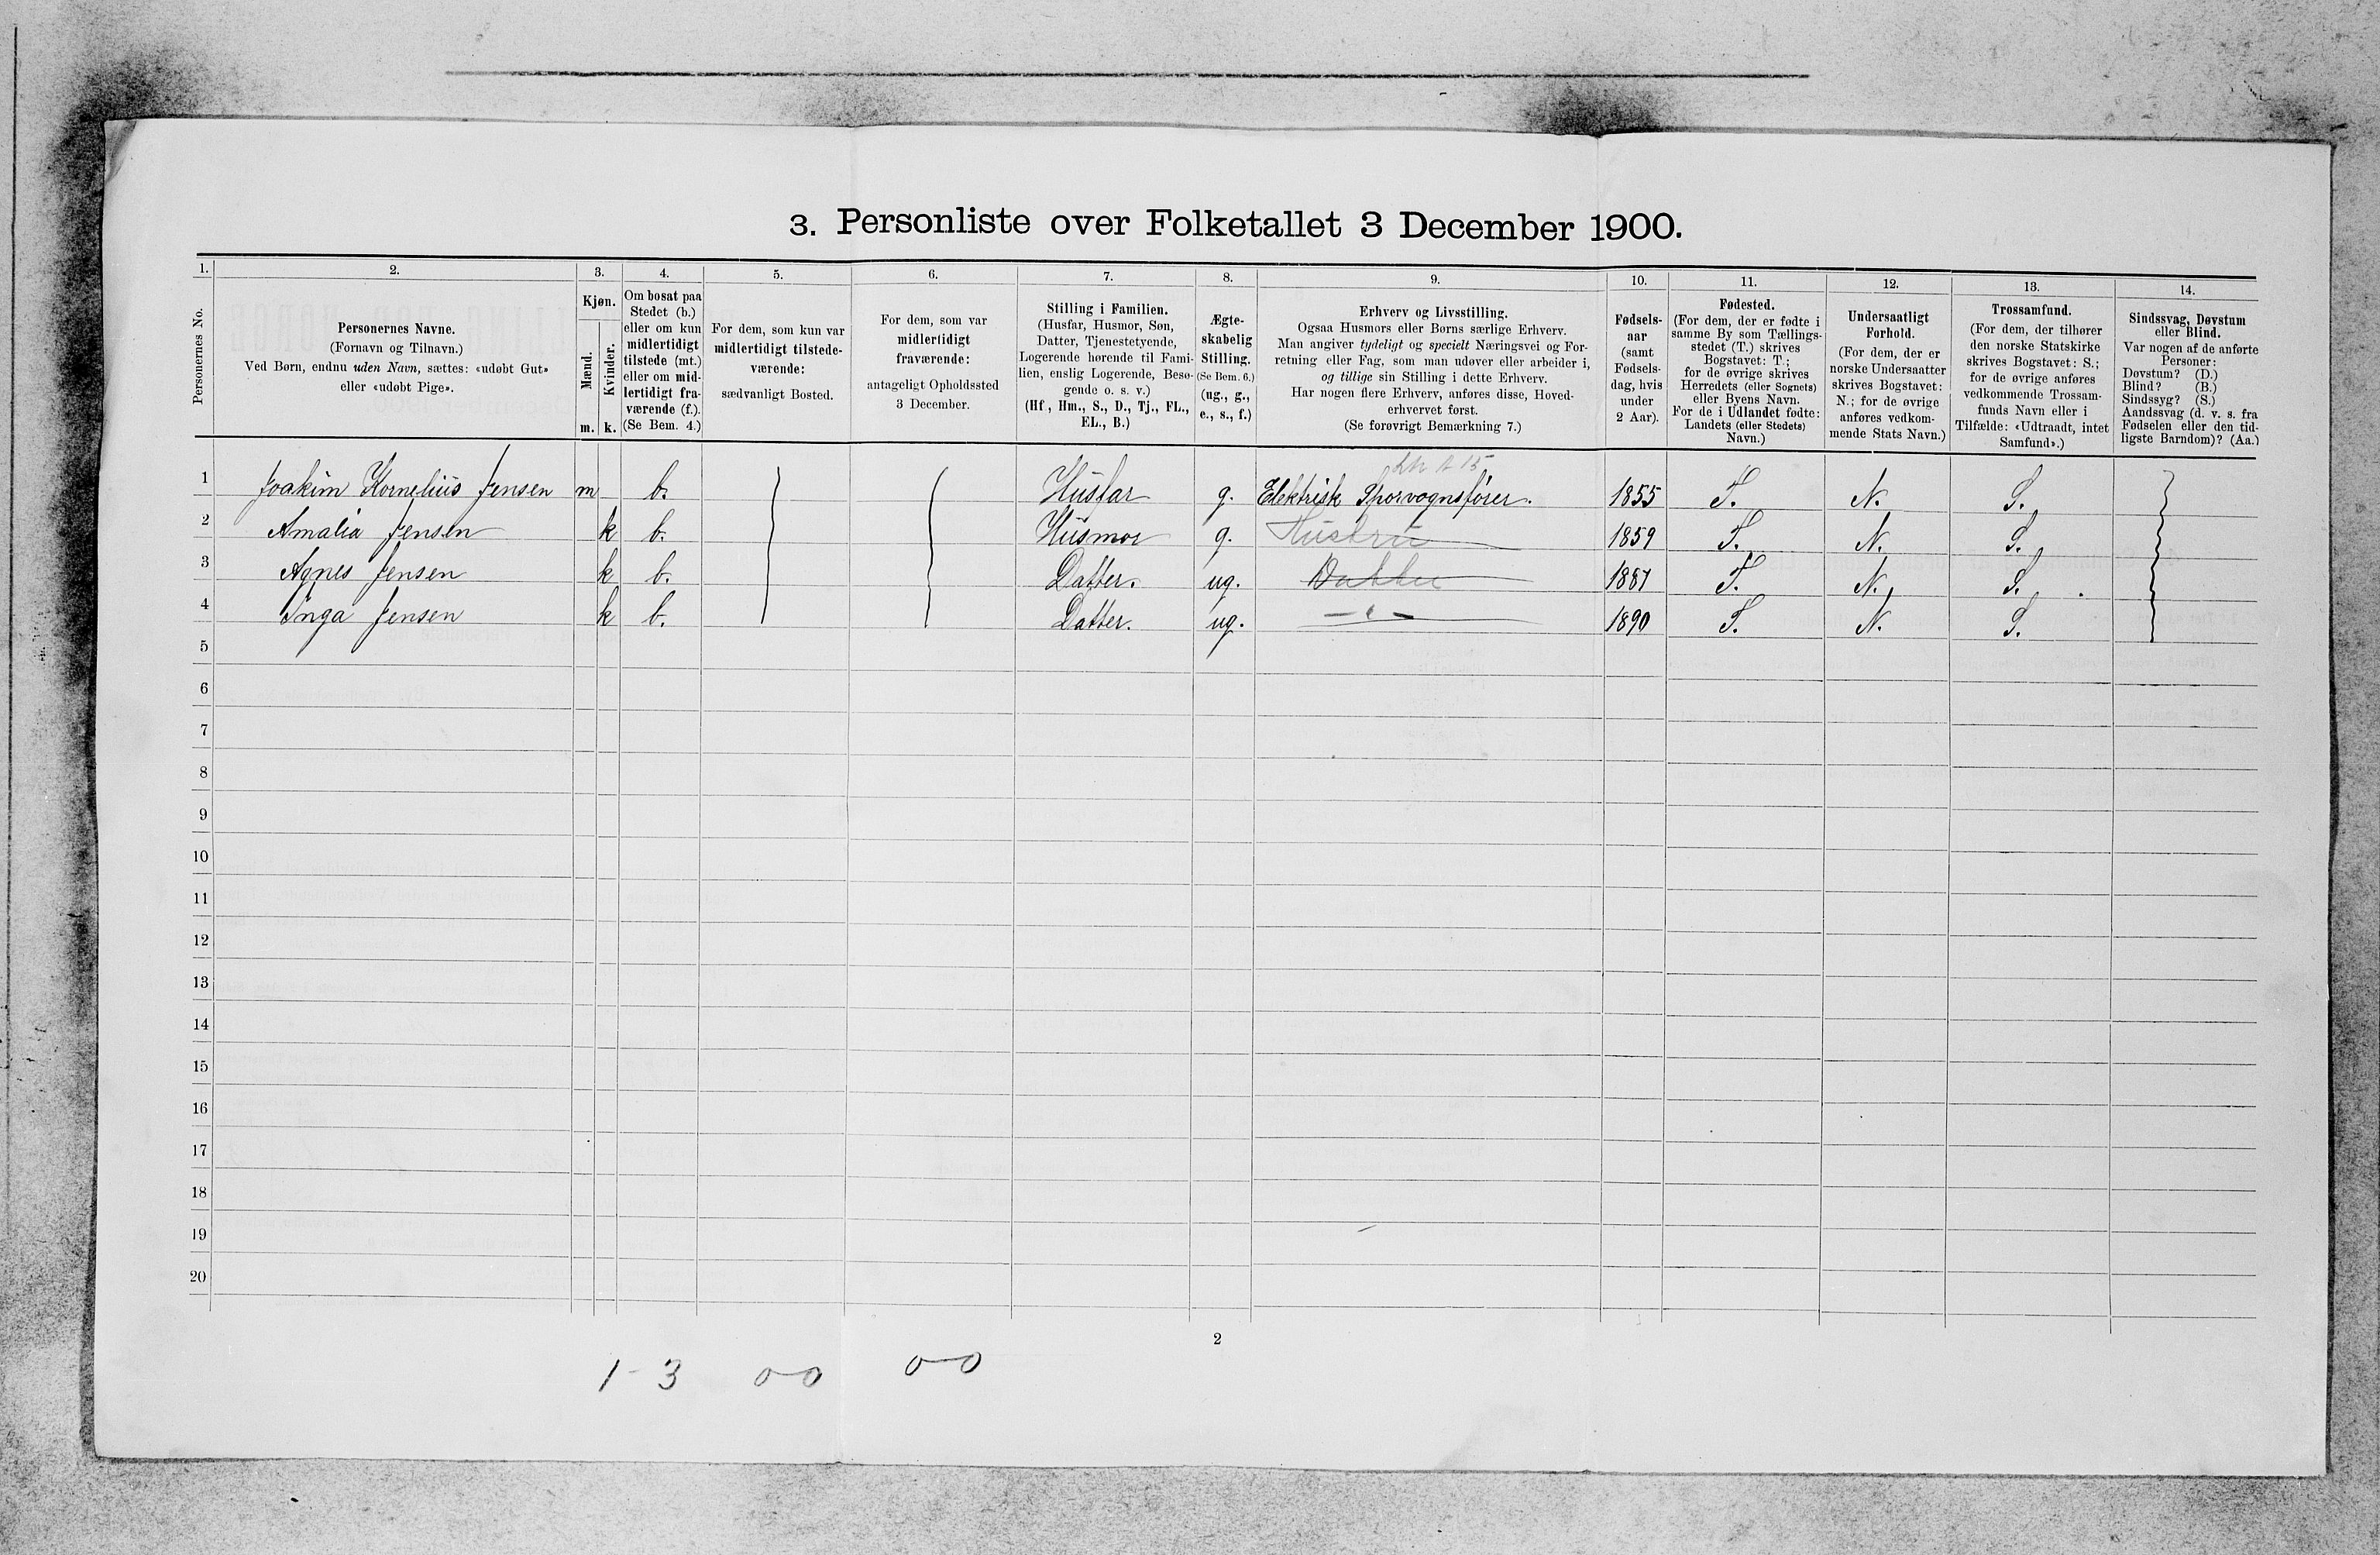 3. Personliste over Folketallet 3 December 1900.
1. 2. 3. 4. 5. 6. 7. 8. 9. 10. 11. 12. 13. 14.
Personernes No.
Personernes Navne.
(Fornavn og Tilnavn.)
Ved Børn, endnu uden Navn, sættes: «udøbt Gut»
eller «udøbt Pige».
Kjøn.
Mænd.
Kvinder.
m. k.
Om bosat paa
Stedet (b.)
eller om kun
midlertidigt
tilstede (mt.)
eller om mid-
lertidigt fra-
værende (f.).
(Se Bem. 4.)
For dem, som kun var
midlertidigt tilstede-
værende:
sædvanligt Bosted.
For dem, som var
midlertidigt
fraværende:
antageligt Opholdssted
3 December.
Stilling i Familien.
(Husfar, Husmor, Søn,
Datter, Tjenestetyende,
Logerende hørende til Fami-
lien, enslig Logerende, Besø-
gende o. s. v.)
(Hf., Hm., S., D., Tj., FL.,
EL., B.)
Ægte-
skabelig
Stilling.
(Se Bem. 6.)
(ug., g.,
e., s., f.)
Erhverv og Livsstilling.
Ogsaa Husmors eller Børns særlige Erhverv.
Man angiver tydeligt og specielt Næringsvei og For-
retning eller Fag, som man udøver eller arbeider i,
og tillige sin Stilling i dette Erhverv.
Har nogen flere Erhverv, anføres disse, Hoved-
erhvervet først.
(Se forøvrigt Bemærkning 7.)
Fødsels-
aar
(samt
Fødsels-
dag, hvis
under
2 Aar).
Fødested.
(For dem, der er fødte i
samme By som Tællings-
stedet (T.) skrives
Bogstavet: T.;
for de øvrige skrives
Herredets (eller Sognets)
eller Byens Navn.
For de i Udlandet fødte:
Landets (eller Stedets)
Navn.)
Undersaatligt
Forhold.
(For dem, der er
norske Undersaatter
skrives Bogstavet:
N.; for de øvrige
anføres vedkom-
mende Stats Navn.)
Trossamfund.
(For dem, der tilhører
den norske Statskirke
skrives Bogstavet: S.;
for de øvrige anføres
vedkommende Trossam-
funds Navn eller i
Tilfælde: «Udtraadt, intet
Samfund».)
Sindssvag, Døvstum
eller Blind.
Var nogen af de anførte
Personer:
Døvstum? (D.)
Blind? (B.)
Sindssyg? (S.)
Aandssvag (d. v. s. fra
Fødselen eller den tid-
ligste Barndom)? (Aa.)
1 Joakim Kornelius Jensen m b. Husfar g. Elektrisk Sporvognsfører. 1855 T. N. S.
2 Amalia Jensen k b. Husmor g. Hustru 1859 T. N. S.
3 Agnes Jensen k b. Datter. ug. Datter 1887 T. N. S.
4 Inga Jensen k b. Datter. ug. — " — 1890 T. N. S.
5
6
7
8
9
10
11
12
13
14
15
16
17
18
19
20
2
1-3 0-0 0-0